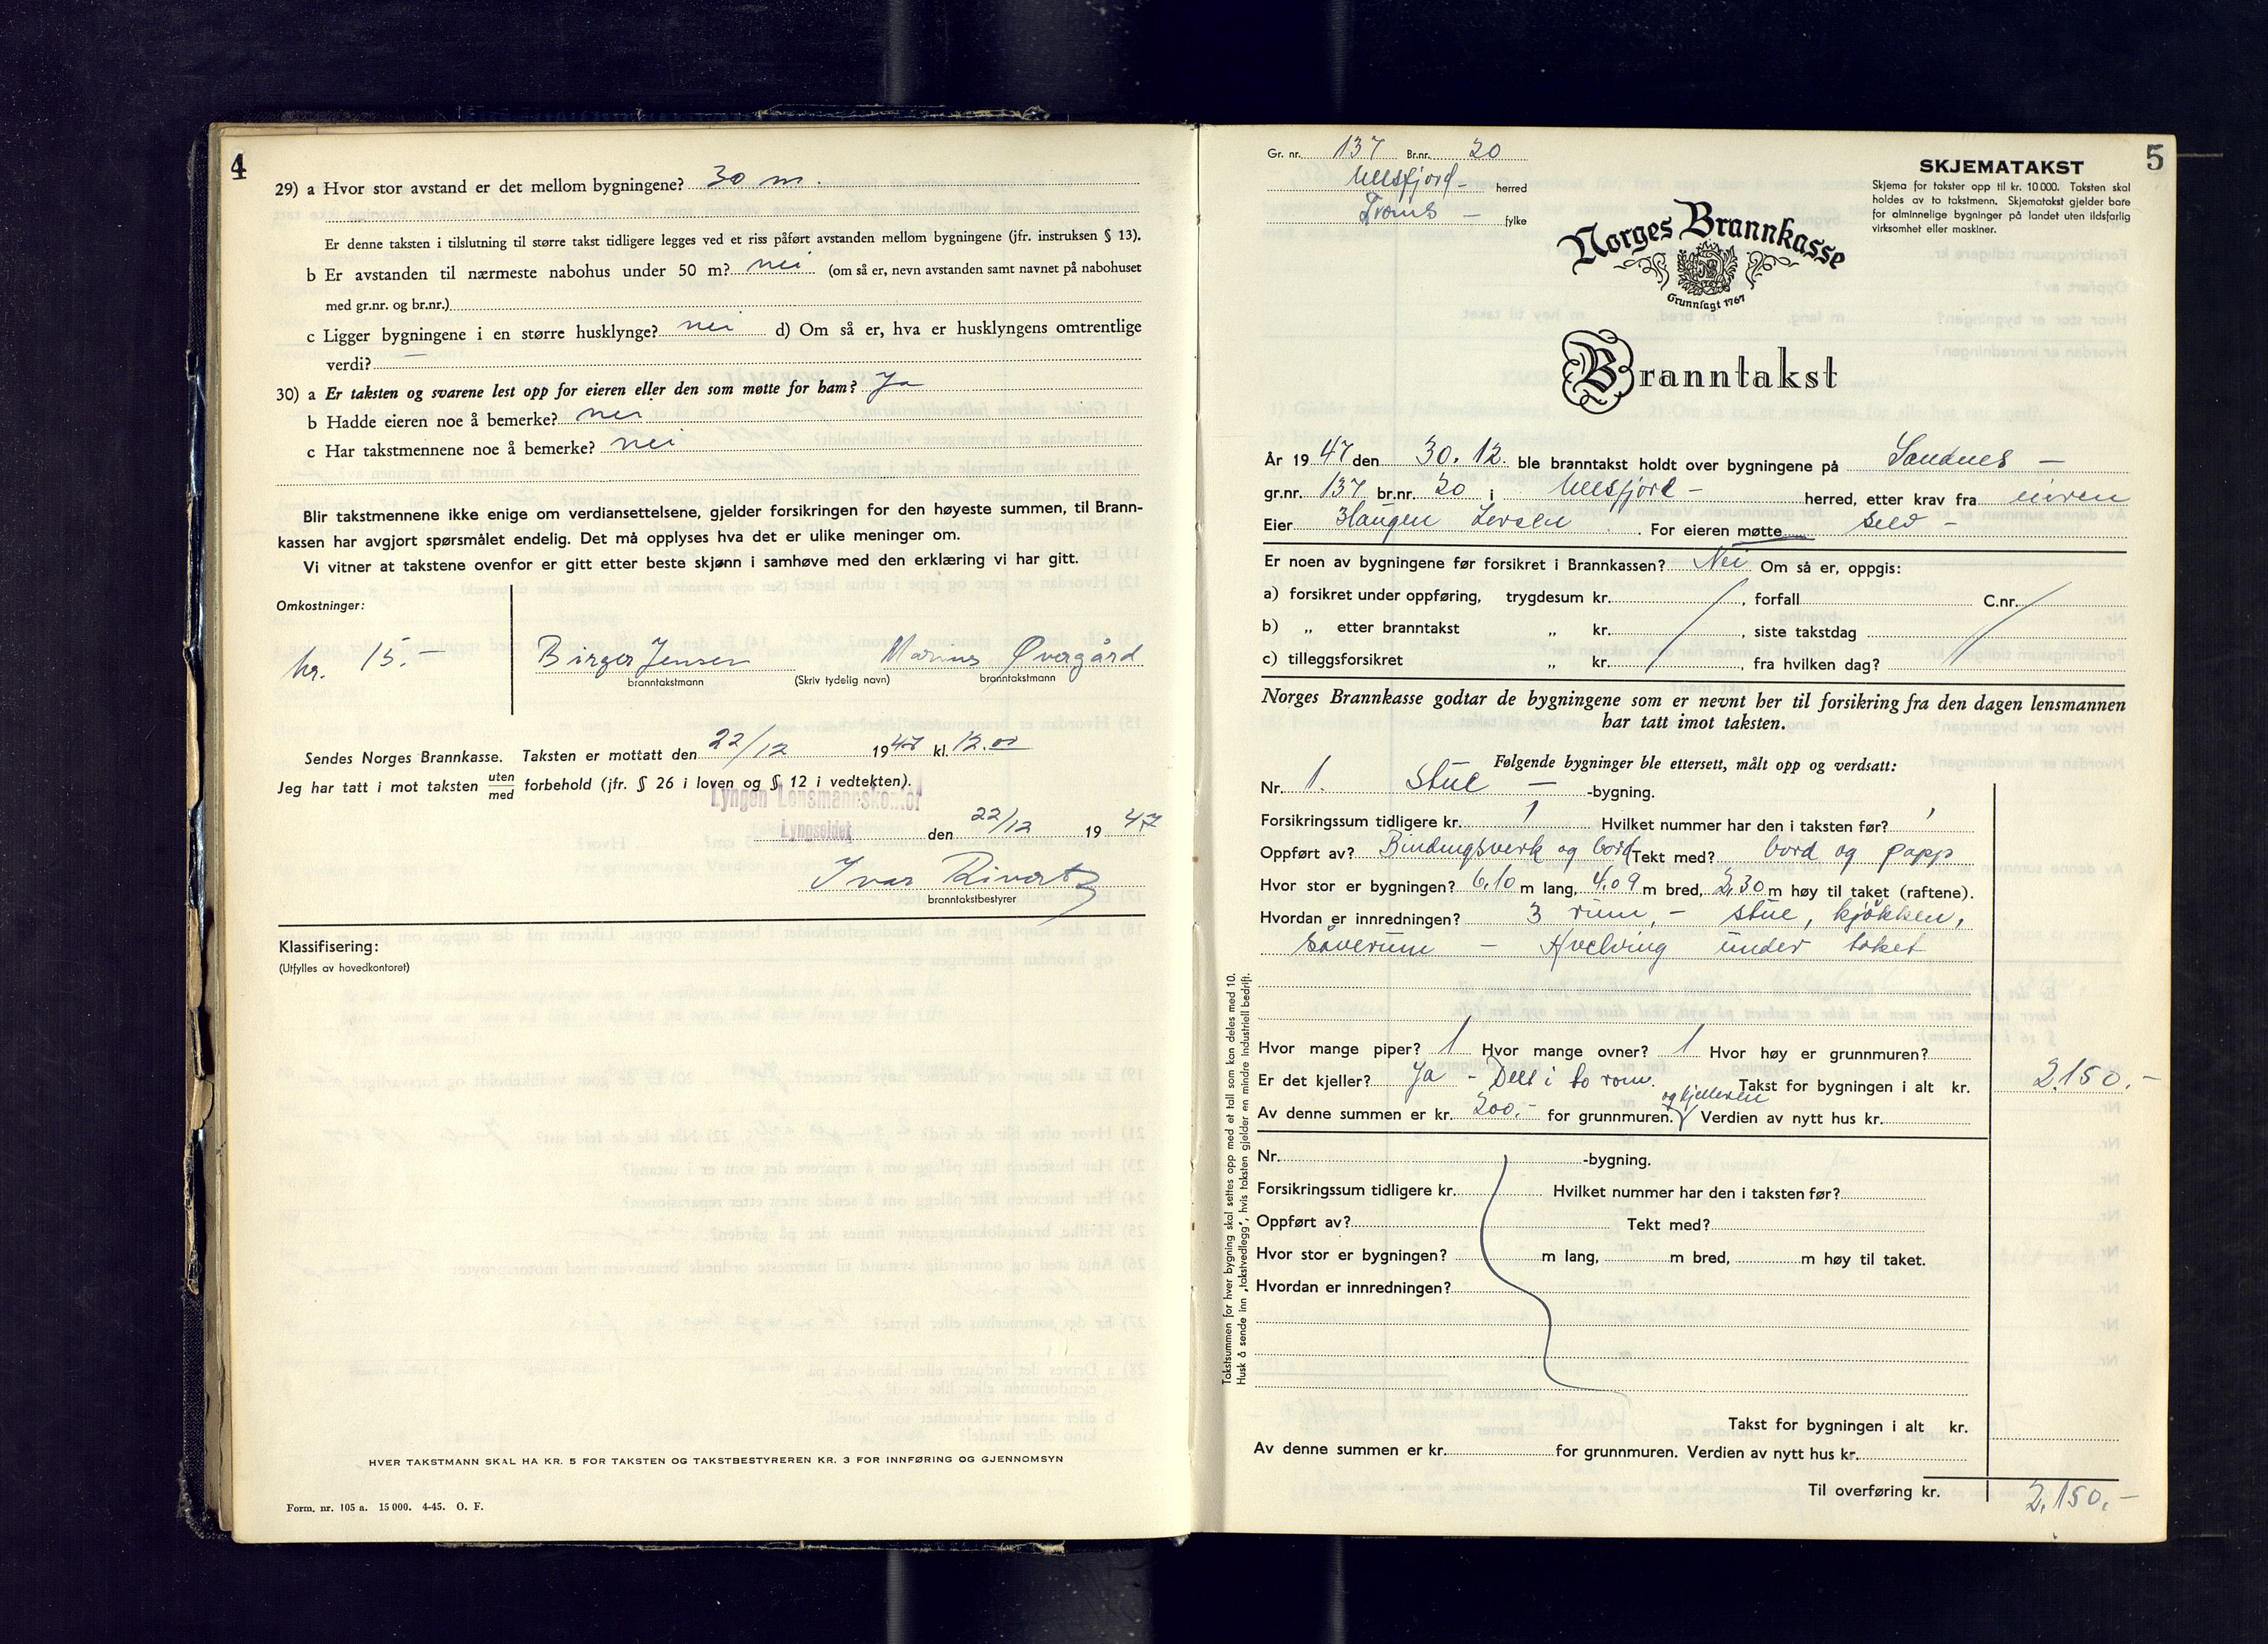 4
29) a Hvor stor avstand er det mellom bygningene? 30 m.
Er denne taksten i tilslutning til større takst tidligere legges ved et riss påført avstanden mellom bygningene (jfr. instruksen § 13).
b Er avstanden til nærmeste nabohus under 50 m? nei (om så er, nevn avstanden samt navnet på nabohuset
med gr.nr. og br.nr.)
c Ligger bygningene i en større husklynge? nei d) Om så er, hva er husklyngens omtrentlige
verdi? —
30) a Er taksten og svarene lest opp for eieren eller den som møtte for ham? Ja
b Hadde eieren noe å bemerke? nei
c Har takstmennene noe å bemerke? nei
Blir takstmennene ikke enige om verdiansettelsene, gjelder forsikringen for den høyeste summen, til Brann-
kassen har avgjort spørsmålet endelig. Det må opplyses hva det er ulike meninger om.
Vi vitner at takstene ovenfor er gitt etter beste skjønn i samhøve med den erklæring vi har gitt.
Omkostninger:
kr. 15.— Birger Jensen Marius Øvergård
branntakstmann (Skriv tydelig navn) branntakstmann
Sendes Norges Brannkasse. Taksten er mottatt den 22/12 1947 kl. 12.00
Jeg har tatt i mot taksten uten med forbehold (jfr. § 26 i loven og § 12 i vedtekten).
Lyngen Lensmannskontor
Lyngseidet den 22/12 1947
Ivar Rivertz
branntakstbestyrer
Klassifisering:
(Utfylles av hovedkontoret)
HVER TAKSTMANN SKAL HA KR. 5 FOR TAKSTEN OG TAKSTBESTYREREN KR. 3 FOR INNFØRING OG GJENNOMSYN
Form. nr. 105 a. 15 000. 4-45. O. F.
5
Gr. nr. 137 Br.nr. 20
Ullsfjord — herred
Troms — fylke
SKJEMATAKST
Skjema for takster opp til kr. 10 000. Taksten skal
holdes av to takstmenn. Skjematakst gjelder bare
for alminnelige bygninger på landet uten ildsfarlig
virksomhet eller maskiner.
Norges Brannkasse
Grunnlagt 1767
Branntakst
År 1947 den 30. 12. ble branntakst holdt over bygningene på Sandnes —
gr.nr. 137 br.nr. 20 i Ullsfjord — herred, etter krav fra eieren
Eier Haugen For eieren møtte selv —
Er noen av bygningene før forsikret i Brannkassen? Nei Om så er, oppgis:
a) forsikret under oppføring, trygdesum kr. , forfall C.nr.
b) „ etter branntakst „ kr. , siste takstdag
c) tilleggsforsikret „ kr. , fra hvilken dag?
Norges Brannkasse godtar de bygningene som er nevnt her til forsikring fra den dagen lensmannen
har tatt imot taksten.
Følgende bygninger ble ettersett, målt opp og verdsatt:
Nr. 1. Stue — -bygning.
Forsikringssum tidligere kr. Hvilket nummer har den i taksten før?
Oppført av? Bindingsverk og bord Tekt med? bord og papp
Hvor stor er bygningen? 6.10 m lang, 4.09 m bred, 2.30 m høy til taket (raftene).
Hvordan er innredningen? 3 rum, — stue, kjøkken,
soverum — Hvelving under taket
Hvor mange piper? 1 Hvor mange ovner? 1 Hvor høy er grunnmuren?
Er det kjeller? Ja — Delt i to rom. Takst for bygningen i alt kr. 2.150.—
og kjelleren
Av denne summen er kr. 200.— for grunnmuren. Verdien av nytt hus kr.
Nr. -bygning.
Forsikringssum tidligere kr. Hvilket nummer har den i taksten før?
Oppført av? Tekt med?
Hvor stor er bygningen? m lang, m bred, m høy til taket.
Hvordan er innredningen?
Takst for bygningen i alt kr.
Av denne summen er kr. for grunnmuren. Verdien av nytt hus kr.
Til overføring kr. 2.150.—
Takstsummen for hver bygning skal settes opp med et tall som kan deles med 10.
Husk å sende inn „takstvedlegg“, hvis taksten gjelder en mindre industriell bedrift.